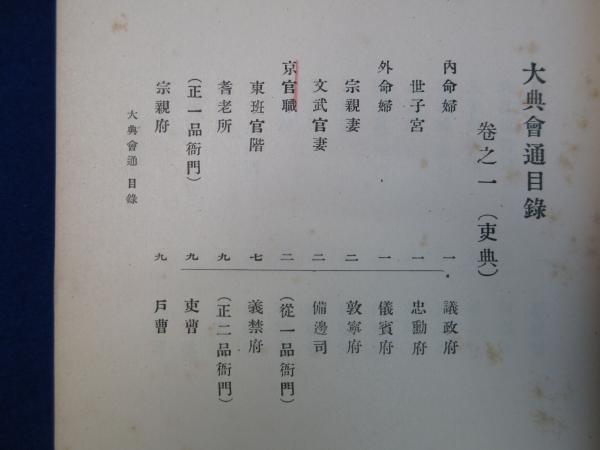 大典會通目錄
卷之一（吏典）
內命婦 一
世子宮 一
外命婦 一
宗親妻 二
文武官妻 二
京官職 二
東班官階 七
耆老所 九
（正一品衙門） 九
宗親府 九
議政府
忠勳府
儀賓府
敦寧府
備邊司
（從一品衙門）
義禁府
（正二品衙門）
吏曹
戶曹
大典會通 目錄